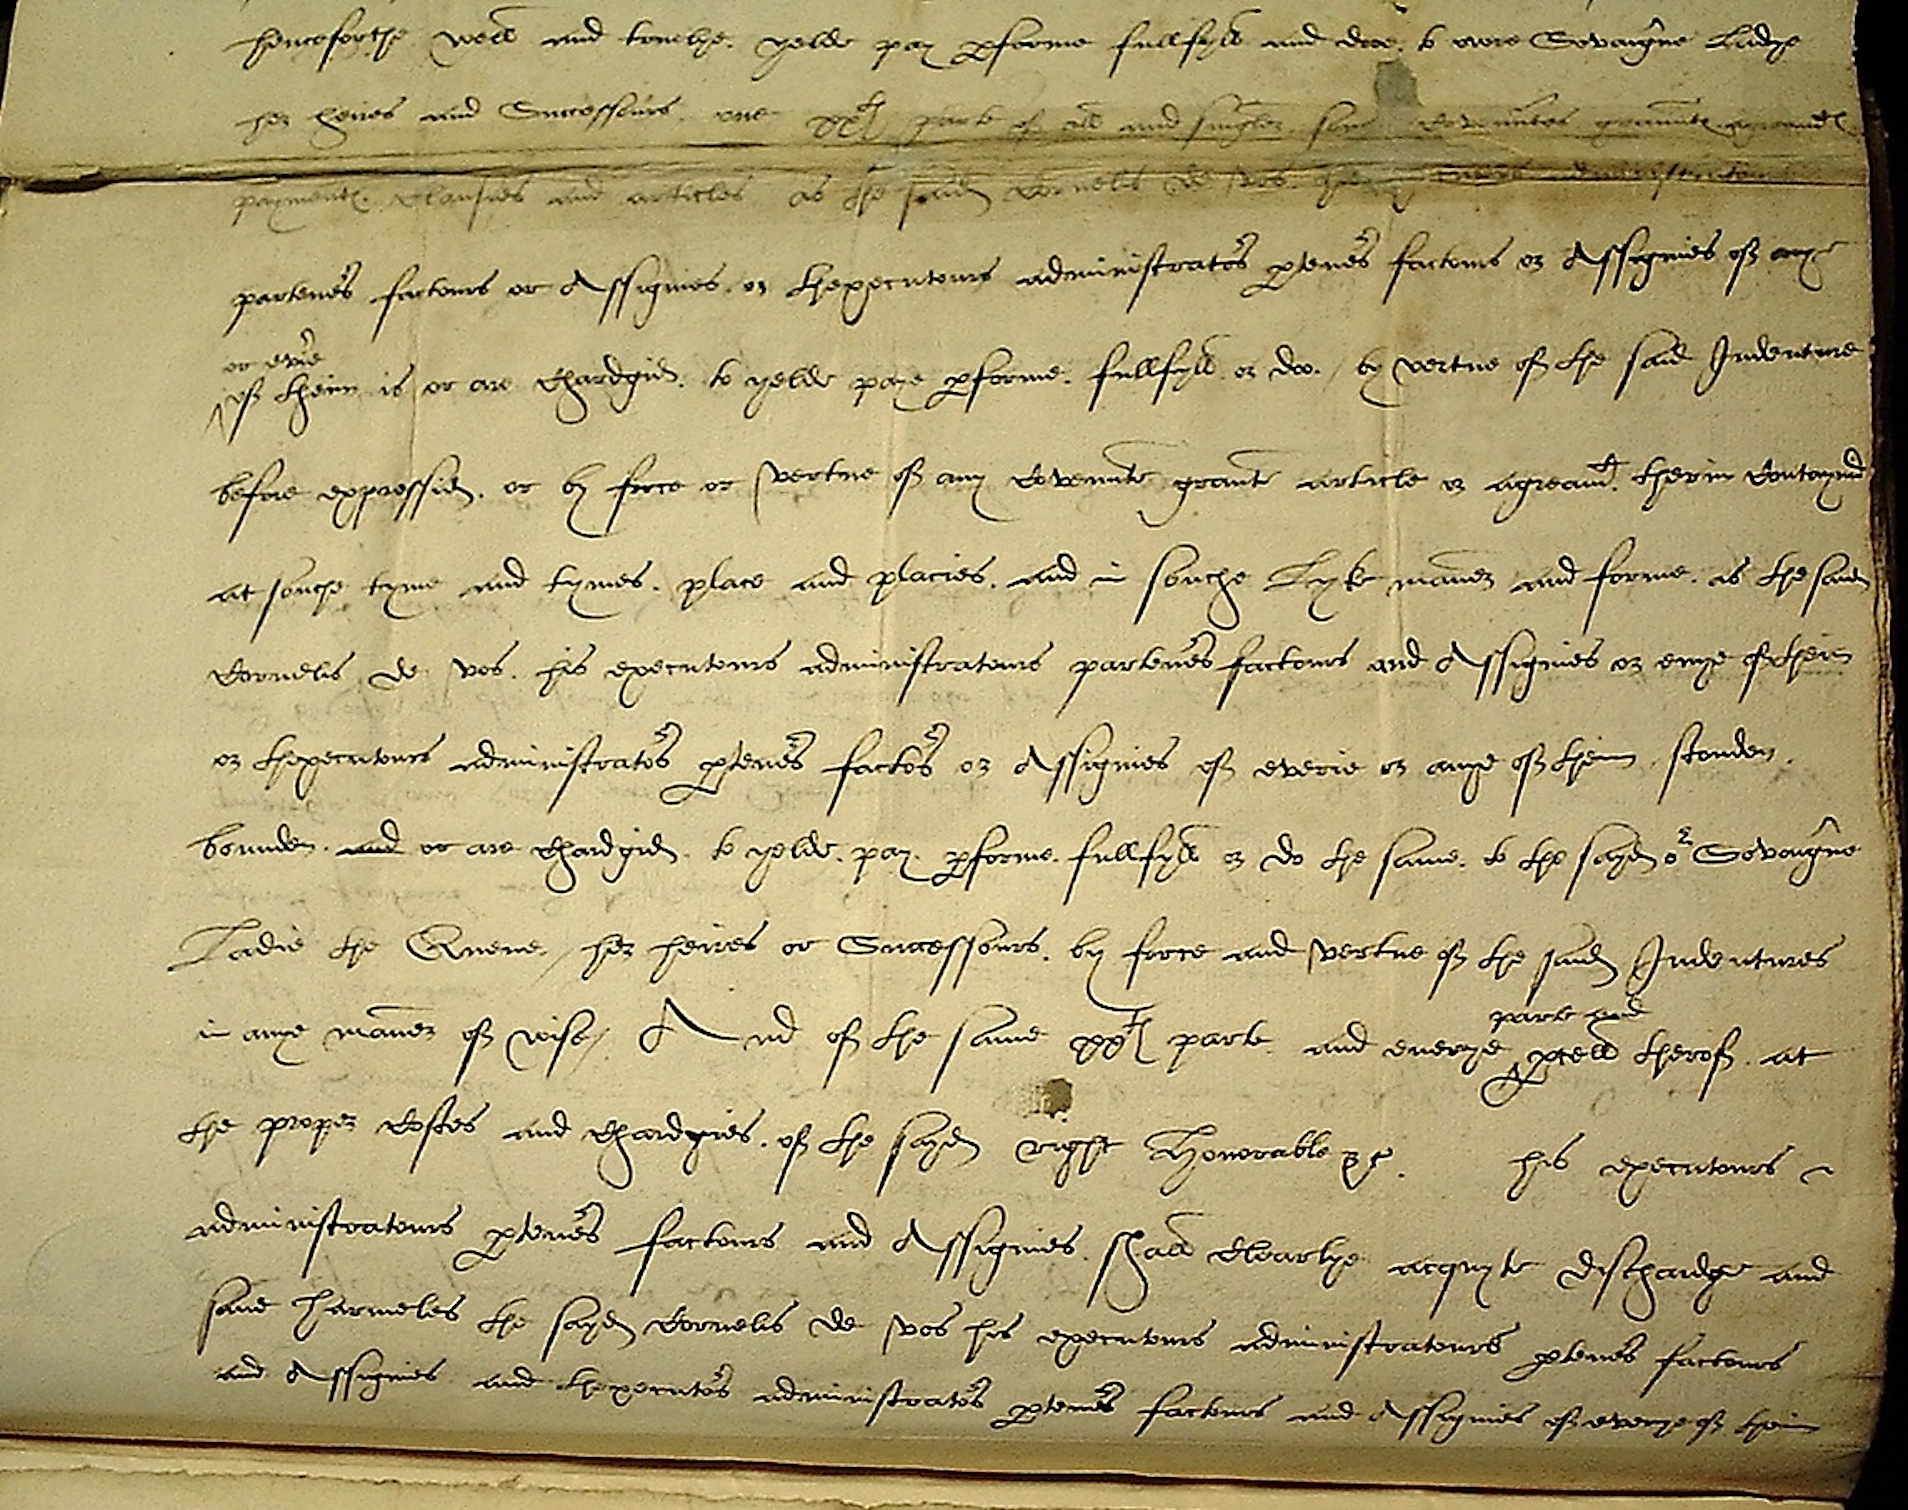 henceforthe well and trewlye. yelde pay pforme fullfyll and doe. to oure Sovaigne Ladye
her heires and Successours. one xxth parte of all and singler. som̄e Covenntes grauntes agreamtes
paymentes. Clauses and articles as the said Cornelis de vos. his
parteners factours or Assignies. or thexecutours administrators pteners factours or Assignies of anye
or evie
of theim is or are Chardgid. to yelde paye pforme. fullfyll or doo. / by vertue of the said Indenture
before expressid. or by force or vertue of any Covennte graunte article or agreamt. therin Conteynid
at souche tyme and tymes. place and placies. and in souche Lyke maner and forme. as the said
Cornelis de vos. his executours administratours parteners factours and Assignies or enye of theim
or thexecutours administrators pteners factors or Assignies of everie or anye of theim. stonden.
bounden. and or are Chardgid. to yelde. pay. pforme. fullfyll or do the same. to the sayd or Sovaigne
Ladie the Quene, her heires or Successours. by force and vertue of the said Indentures
in anye maner of wise / And of the same xxth parte and euerye
parte and
pcell therof. at
the proper Costes and Chardgies. of the sayd right Honorable &c. his executours
administratours pteners factours and Assignies. shall Clearlye acquyte dischardge and
saue harmeles the sayd Cornelis de vos his executours administratours pteners factours
and Assignies and thexecutors administrators pteners factours and Assignies of everye of theim